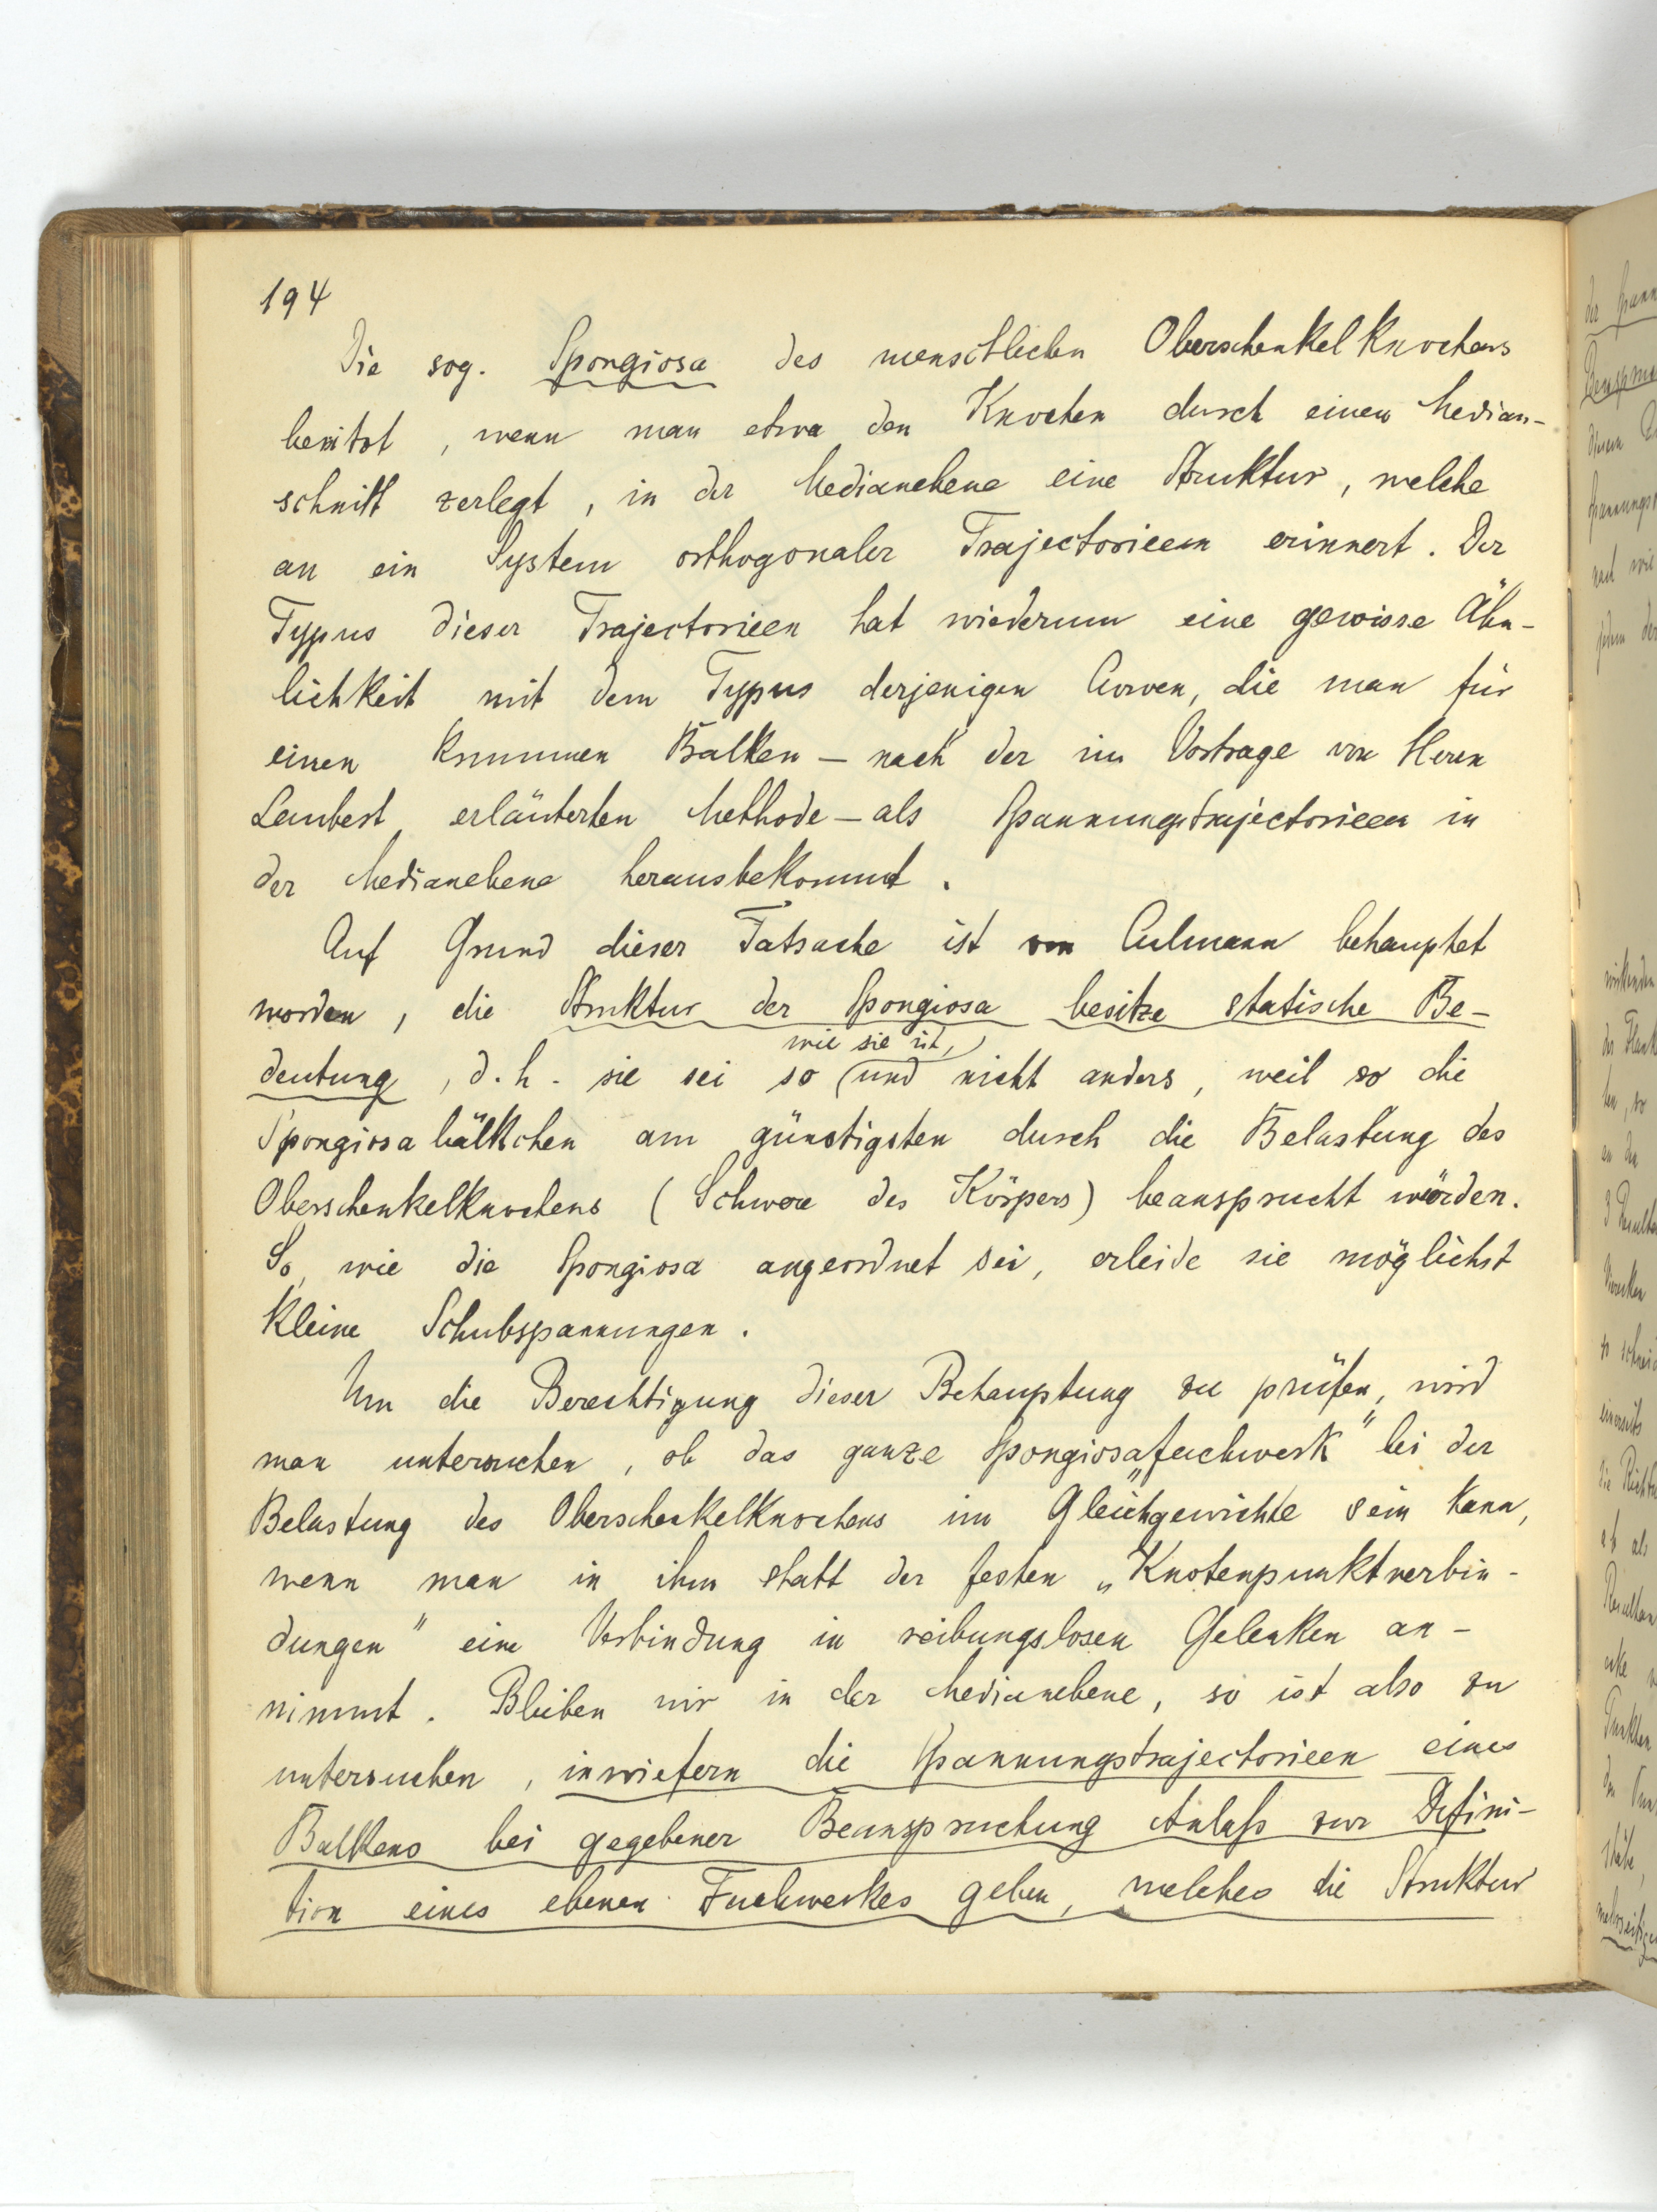 194
Die sog. Spongiosa des menschlichen Oberschenkelknochens
besitzt, wenn man etwa den Knochen durch einen Median-
schnitt zerlegt, in der Medianebene eine Struktur, welche
an ein System orthogonaler Trajectorieen erinnert. Der
Typus dieser Trajectorieen hat wiederum eine gewisse Ähn-
lichkeit mit dem Typus derjenigen Curven, die man für
einen krummen Balken – nach der im Vortrage von Herrn
erläuterten Methode – als Spannungstrajectorieen in
der Medianebene herausbekommt.
Auf Grund dieser Tatsache ist von Culmann behauptet
worden, die Struktur der Spongiosa besitze statische Be-
wie sie ist,
deutung, d.h. sie sei so (und nicht anders, weil so die
Spongiosabälkchen am günstigsten durch die Belastung des
Oberschenkelknochens (Schwere des Körpers) beansprucht würden.
So, wie die Spongiosa angeordnet sei, erleide sie möglichst
kleine Schubspannungen.
Um die Berechtigung dieser Behauptung zu prüfen, wird
man untersuchen, ob das ganze Spongiosa„fachwerk“ bei der
Belastung des Oberschenkelknochens im Gleichgewichte sein kann,
wenn man in ihm statt der festen „Knotenpunktverbin-
dungen“ eine Verbindung in reibungslosen Gelenken an-
nimmt. Bleiben wir in der Medianebene, so ist also zu
untersuchen, inwiefern die Spannungstrajectorieen eines
Balkens bei gegebener Beanspruchung Anlaß zur Defini-
tion eines ebenen Fachwerkes geben, welches die Struktur